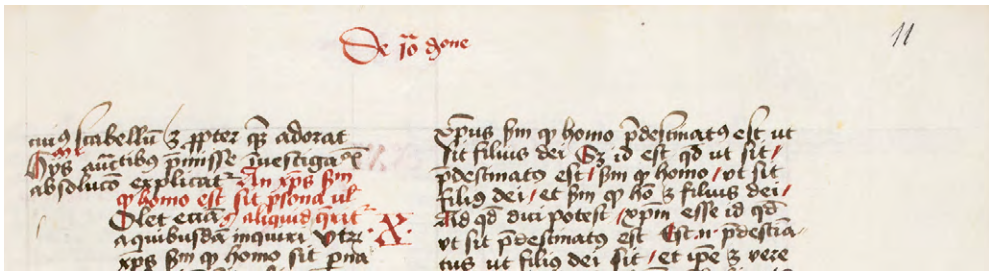 De 
11
cui9 scabellū ꝫ ꝓpter q̄ adorat
absolucō explicat᷑ An xp̄s sm̄
ꝙ homo est sit ꝑsona ul̄
Solet eciā aliquid q̄rit᷑
a quibusdā inquiri Vtꝝ X
xp̄s sm̄ ꝙ homo sit
xp̄us sm̄ ꝙ homo p̄destinatꝰ est ut
sit filius dei Sꝫ id est qd̄ ut sit /
p̄destinatꝰ est / sm̄ ꝙ homo / ut sit
filiꝰ dei / et sm̄ ꝙ hō ꝫ filius dei /
Ad qd̄ dici potest / xp̄m esse id qd̄
ut sit p̄destinatꝰ est Est .n. p̄destīa
tus ut filiꝰ dei sit / et ip̄e ꝫ vere